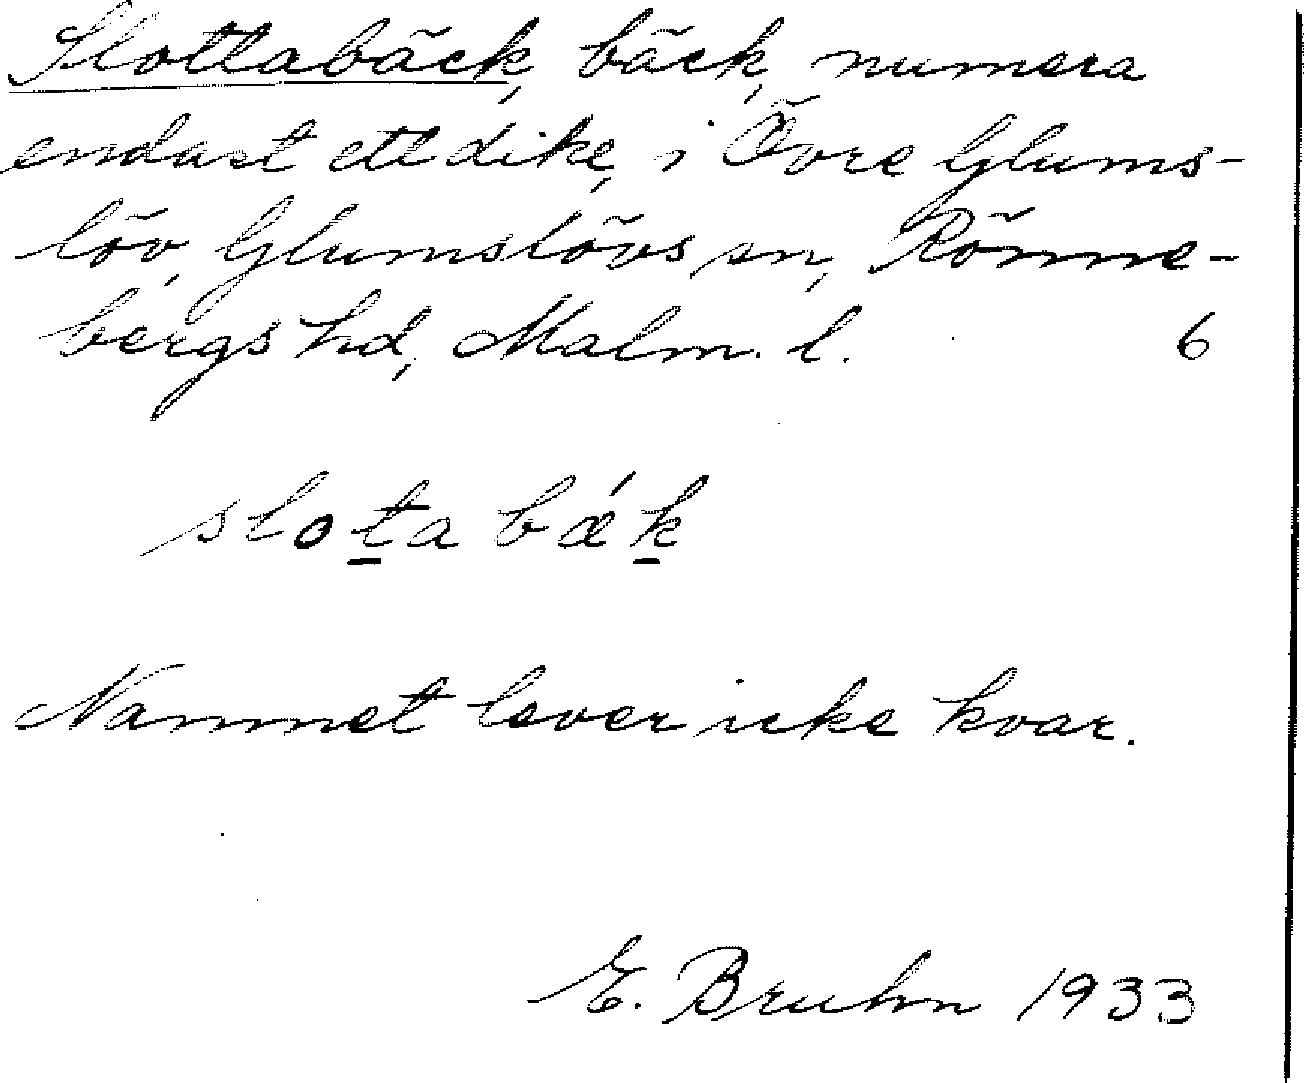 Slottabäck, bäck, numera
endast ett dike, i Övre Glums-
löv, Glumslövs sn, Rönne-
bergs hd, Malm. l. 6
slota bǽk
Namnet lever icke kvar.
E. Bruhn 1933